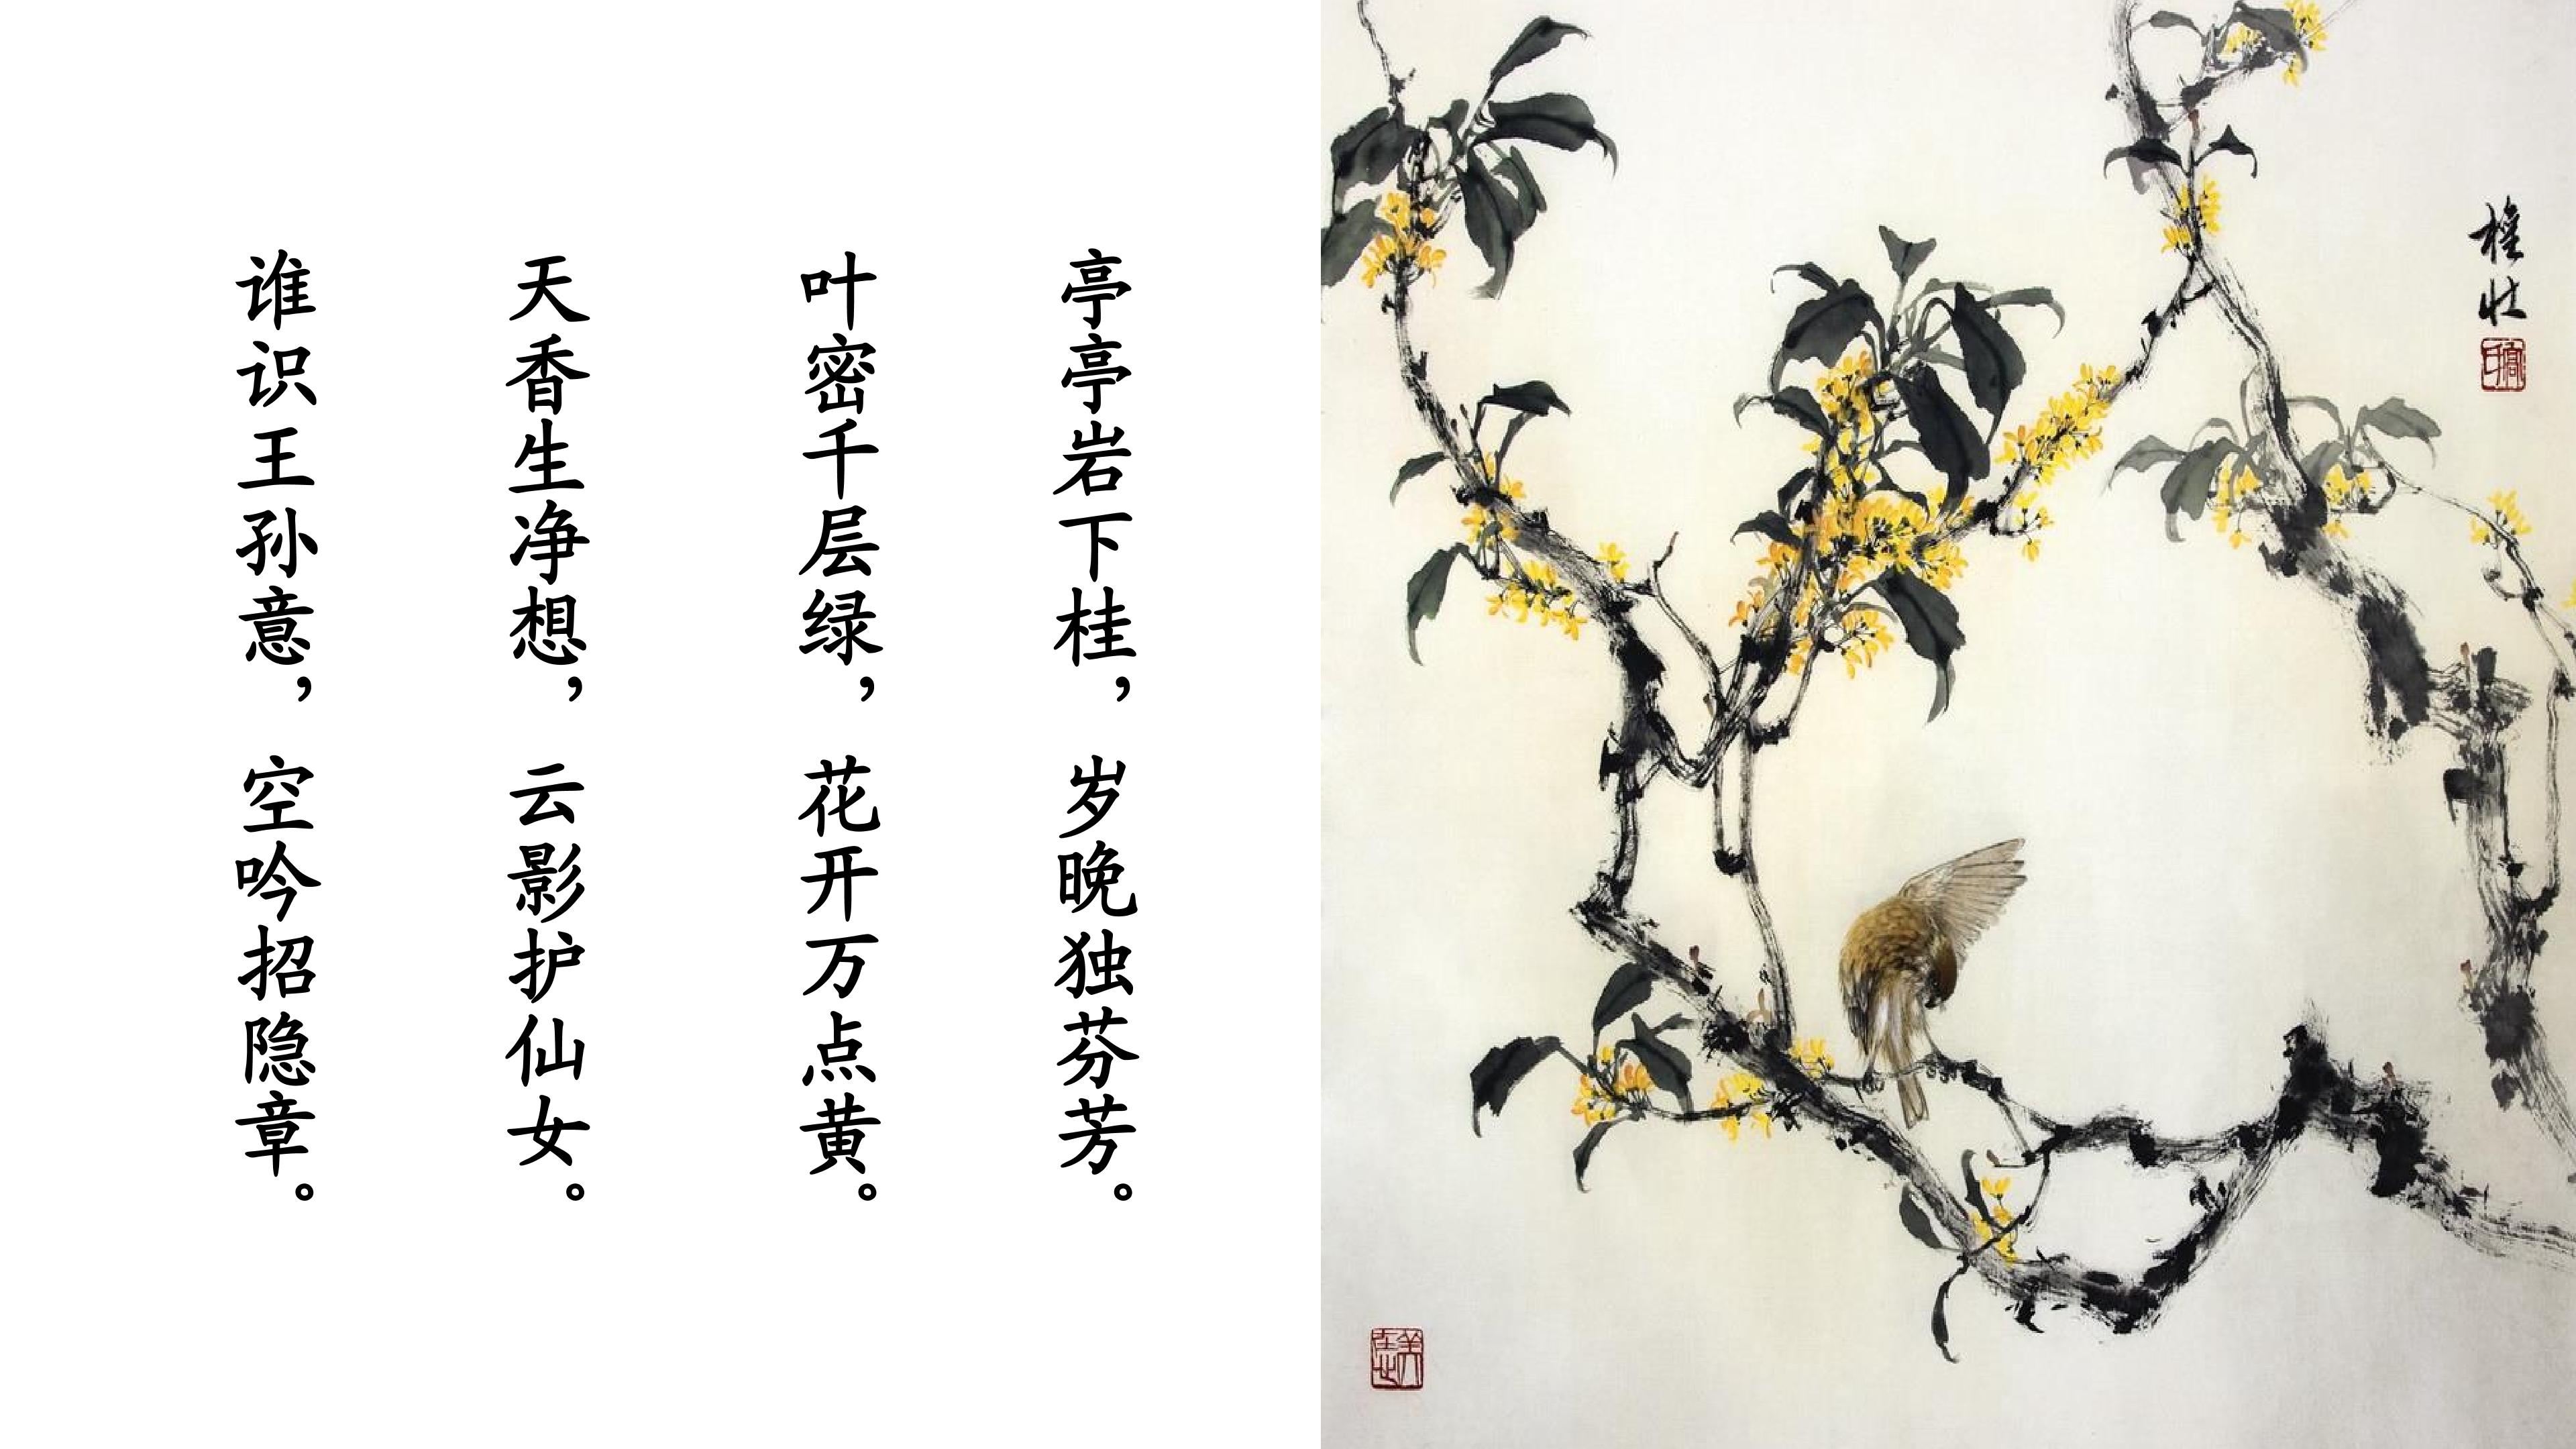 亭亭岩下桂，岁晚独芬芳。
叶密千层绿，花开万点黄。
天香生净想，云影护仙女。
谁识王孙意，空吟招隐章。